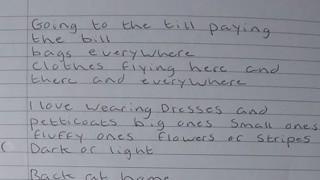 Going to the till paying
the bill
bags everywhere
clothes flying here and
there and everywhere
I love wearing Dresses and
petticoats big ones small ones
fluffy ones flowers or stripes
Dark or light
Back at home